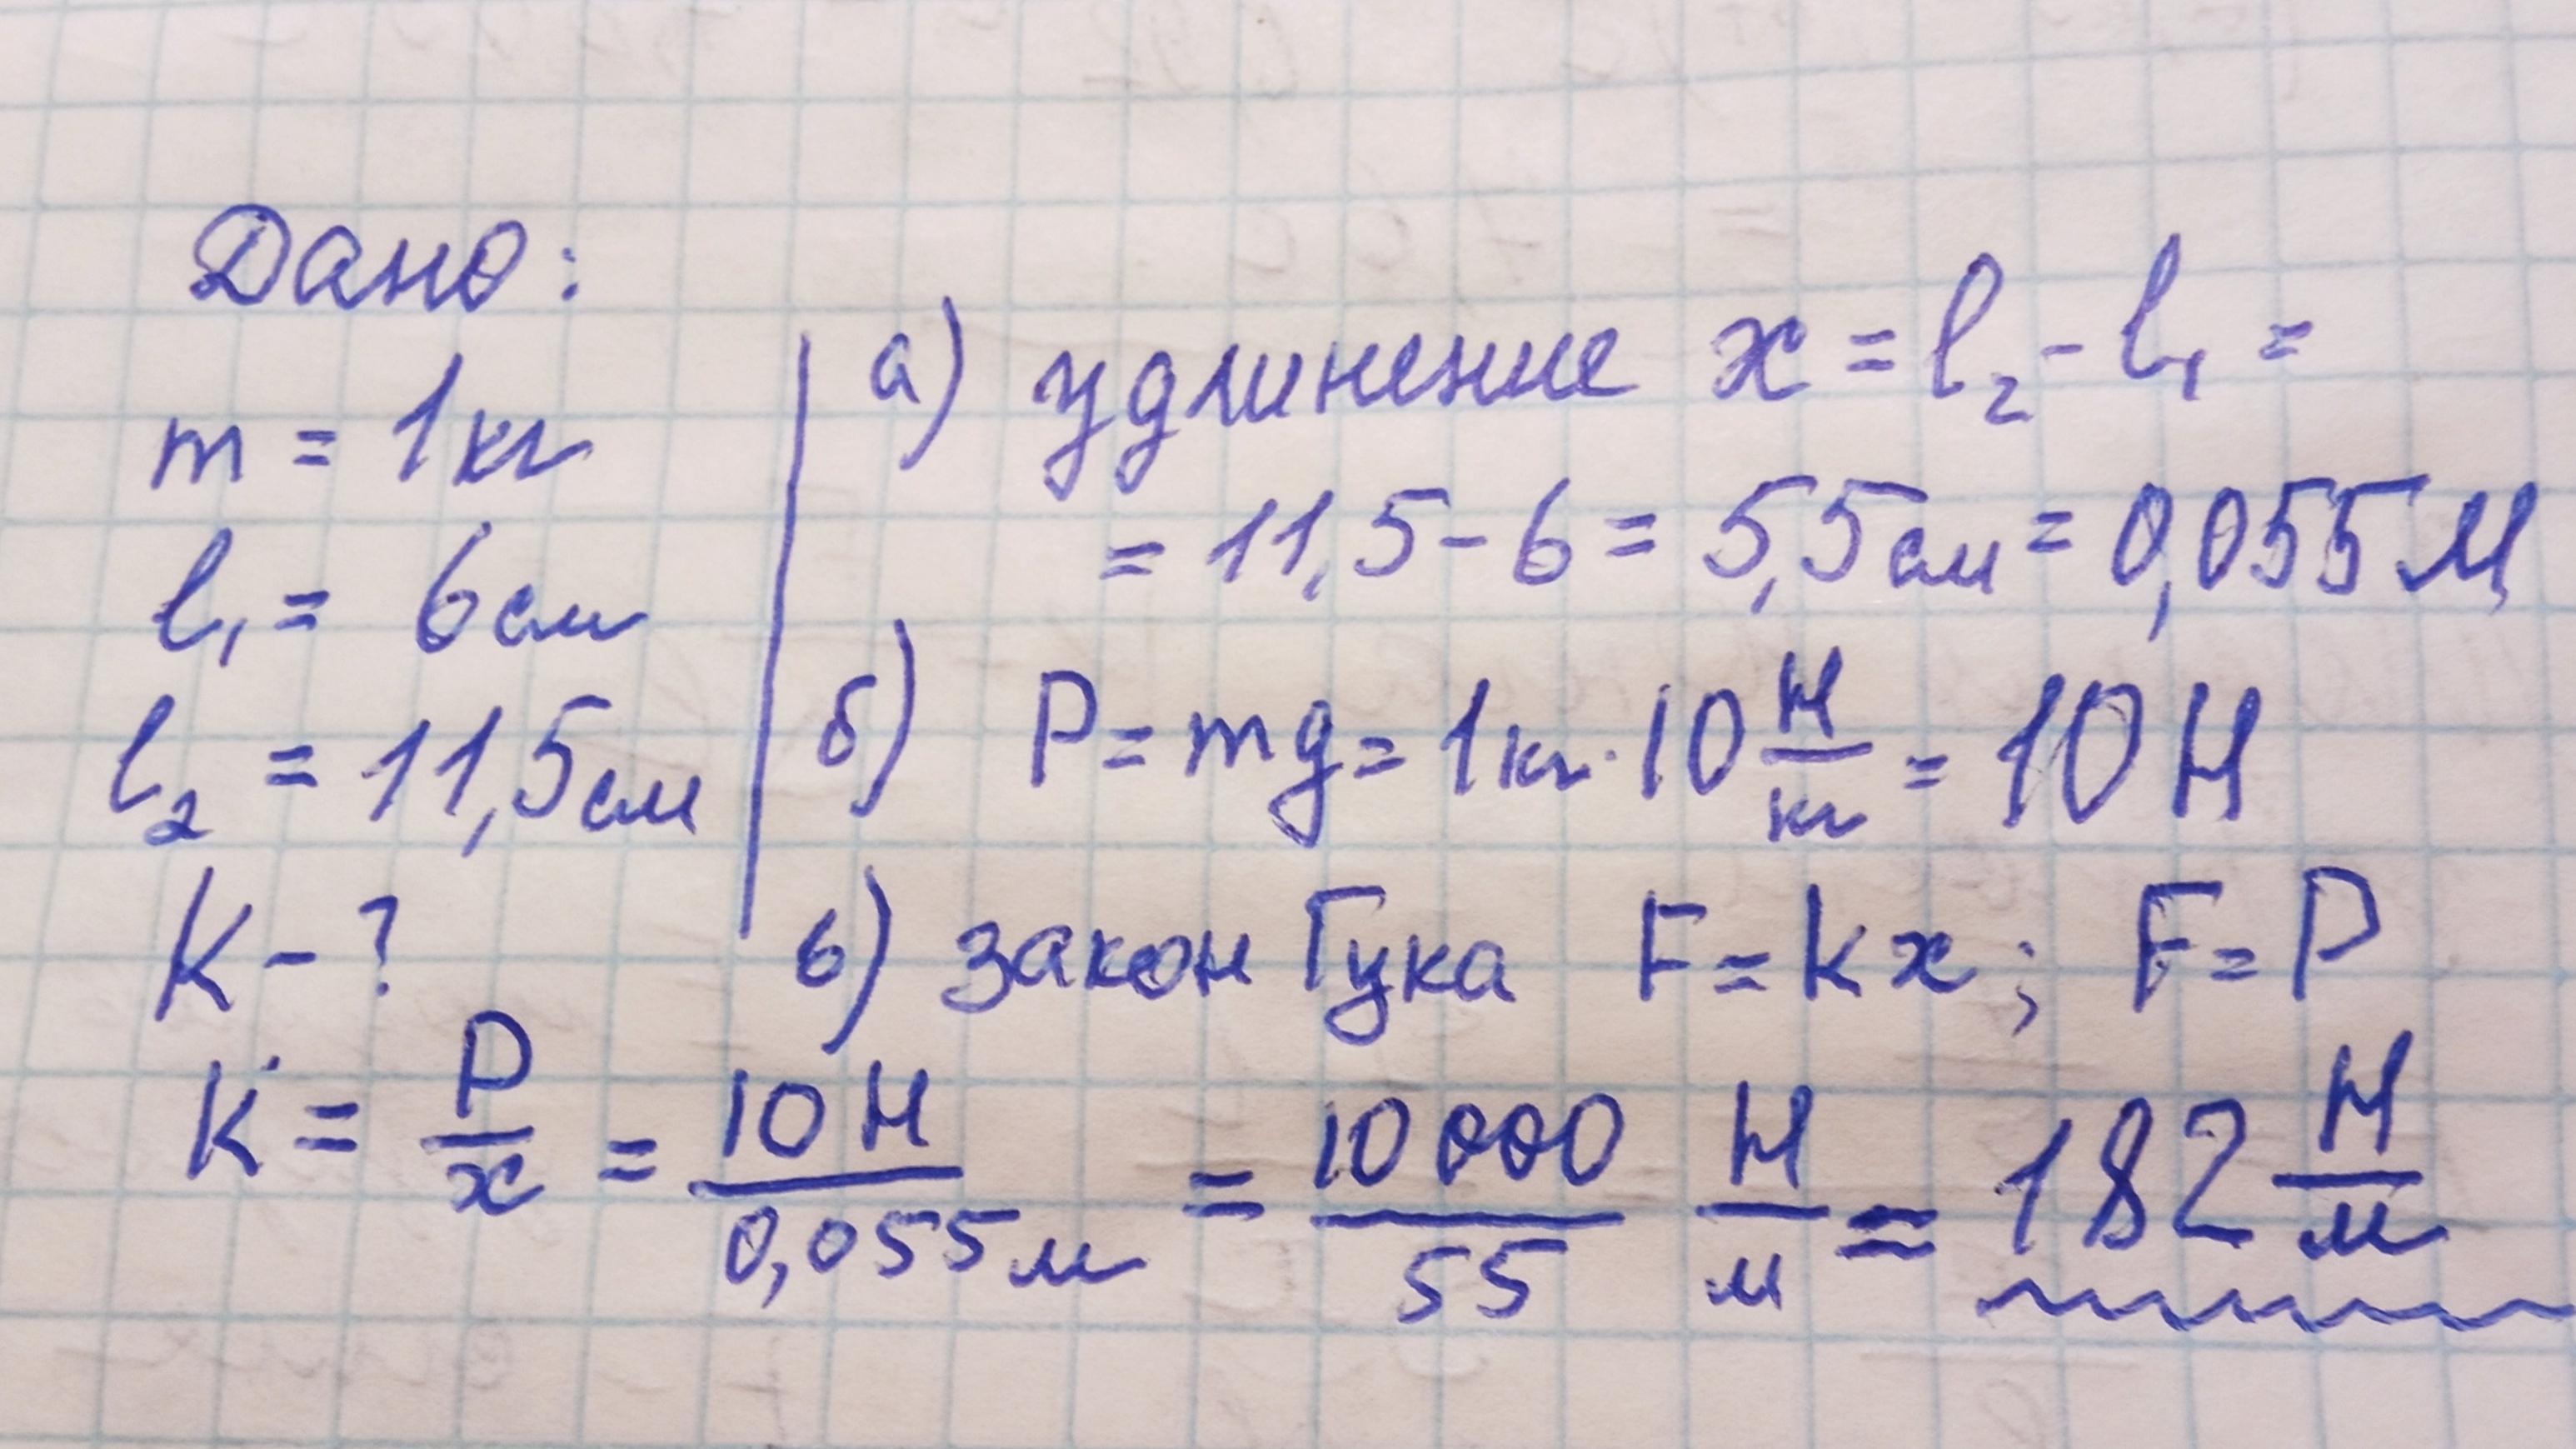 Дано:
m = 1 кг
l₁ = 6 см
l₂ = 11,5 см
K - ?
а) удлинение x = l₂ - l₁ =
= 11,5 - 6 = 5,5 см = 0,055 м
б) P = mg = 1 кг · 10 Н/кг = 10 Н
в) закон Гука F = kx ; F = P
K = P/x = 10 Н/0,055 м = 10 000/55 Н/м ≈ 182 Н/м